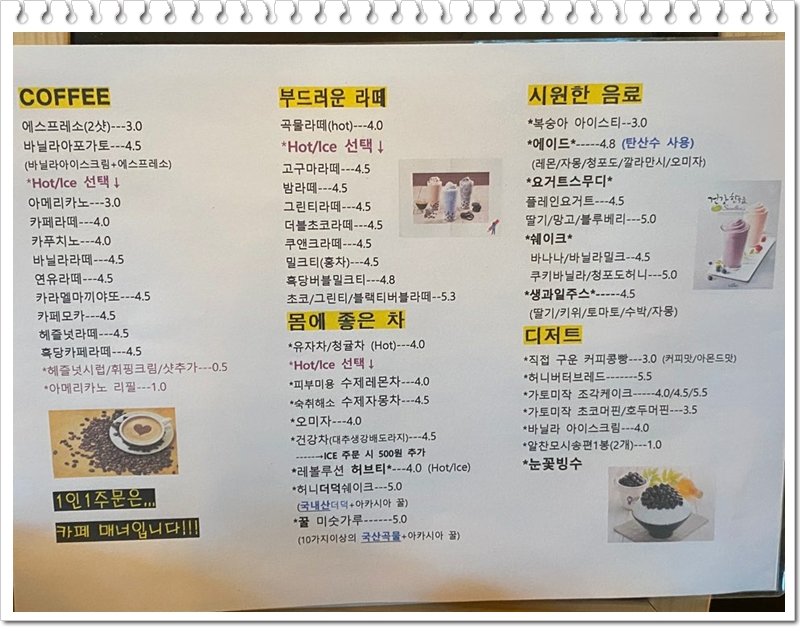 COFFEE
에스프레소(2샷)---3.0
바닐라아포가토---4.5
(바닐라아이스크림+에스프레소)
*Hot/Ice 선택↓
아메리카노---3.0
카페라떼---4.0
카푸치노---4.0
바닐라라떼---4.5
연유라떼---4.5
카라멜마끼야또---4.5
카페모카---4.5
헤즐넛라떼---4.5
흑당카페라떼---4.5
*헤즐넛시럽/휘핑크림/샷추가---0.5
*아메리카노 리필---1.0
1인1주문은,,,
카페 매너입니다!!!
부드러운 라떼
곡물라떼(hot)---4.0
*Hot/Ice 선택↓
고구마라떼---4.5
밤라떼---4.5
그린티라떼---4.5
더블초코라떼---4.5
쿠앤크라떼---4.5
밀크티(홍차)---4.5
흑당버블밀크티---4.8
초코/그린티/블랙티버블라떼--5.3
몸에 좋은 차
*유자차/청귤차 (Hot)---4.0
*Hot/Ice 선택↓
*피부미용 수제레몬차---4.0
*숙취해소 수제자몽차---4.5
*오미자---4.0
*건강차(대추생강배도라지)---4.5
------→ICE 주문 시 500원 추가
*레볼루션 허브티*---4.0 (Hot/Ice)
*허니더덕쉐이크---5.0
(국내산더덕+아카시아 꿀)
*꿀 미숫가루------5.0
(10가지이상의 국산곡물+아카시아 꿀)
시원한 음료
*복숭아 아이스티--3.0
*에이드*-----4.8 (탄산수 사용)
(레몬/자몽/청포도/깔라만시/오미자)
*요거트스무디*
플레인요거트---4.5
딸기/망고/블루베리---5.0
*쉐이크*
바나나/바닐라밀크--4.5
쿠키바닐라/청포도허니---5.0
*생과일주스*-----4.5
(딸기/키위/토마토/수박/자몽)
디저트
*직접 구운 커피콩빵---3.0 (커피맛/아몬드맛)
*허니버터브레드-------5.5
*가토미작 조각케이크-----4.0/4.5/5.5
*가토미작 초코머핀/호두머핀---3.5
*바닐라 아이스크림---4.0
*알찬모시송편1봉(2개)---1.0
*눈꽃빙수